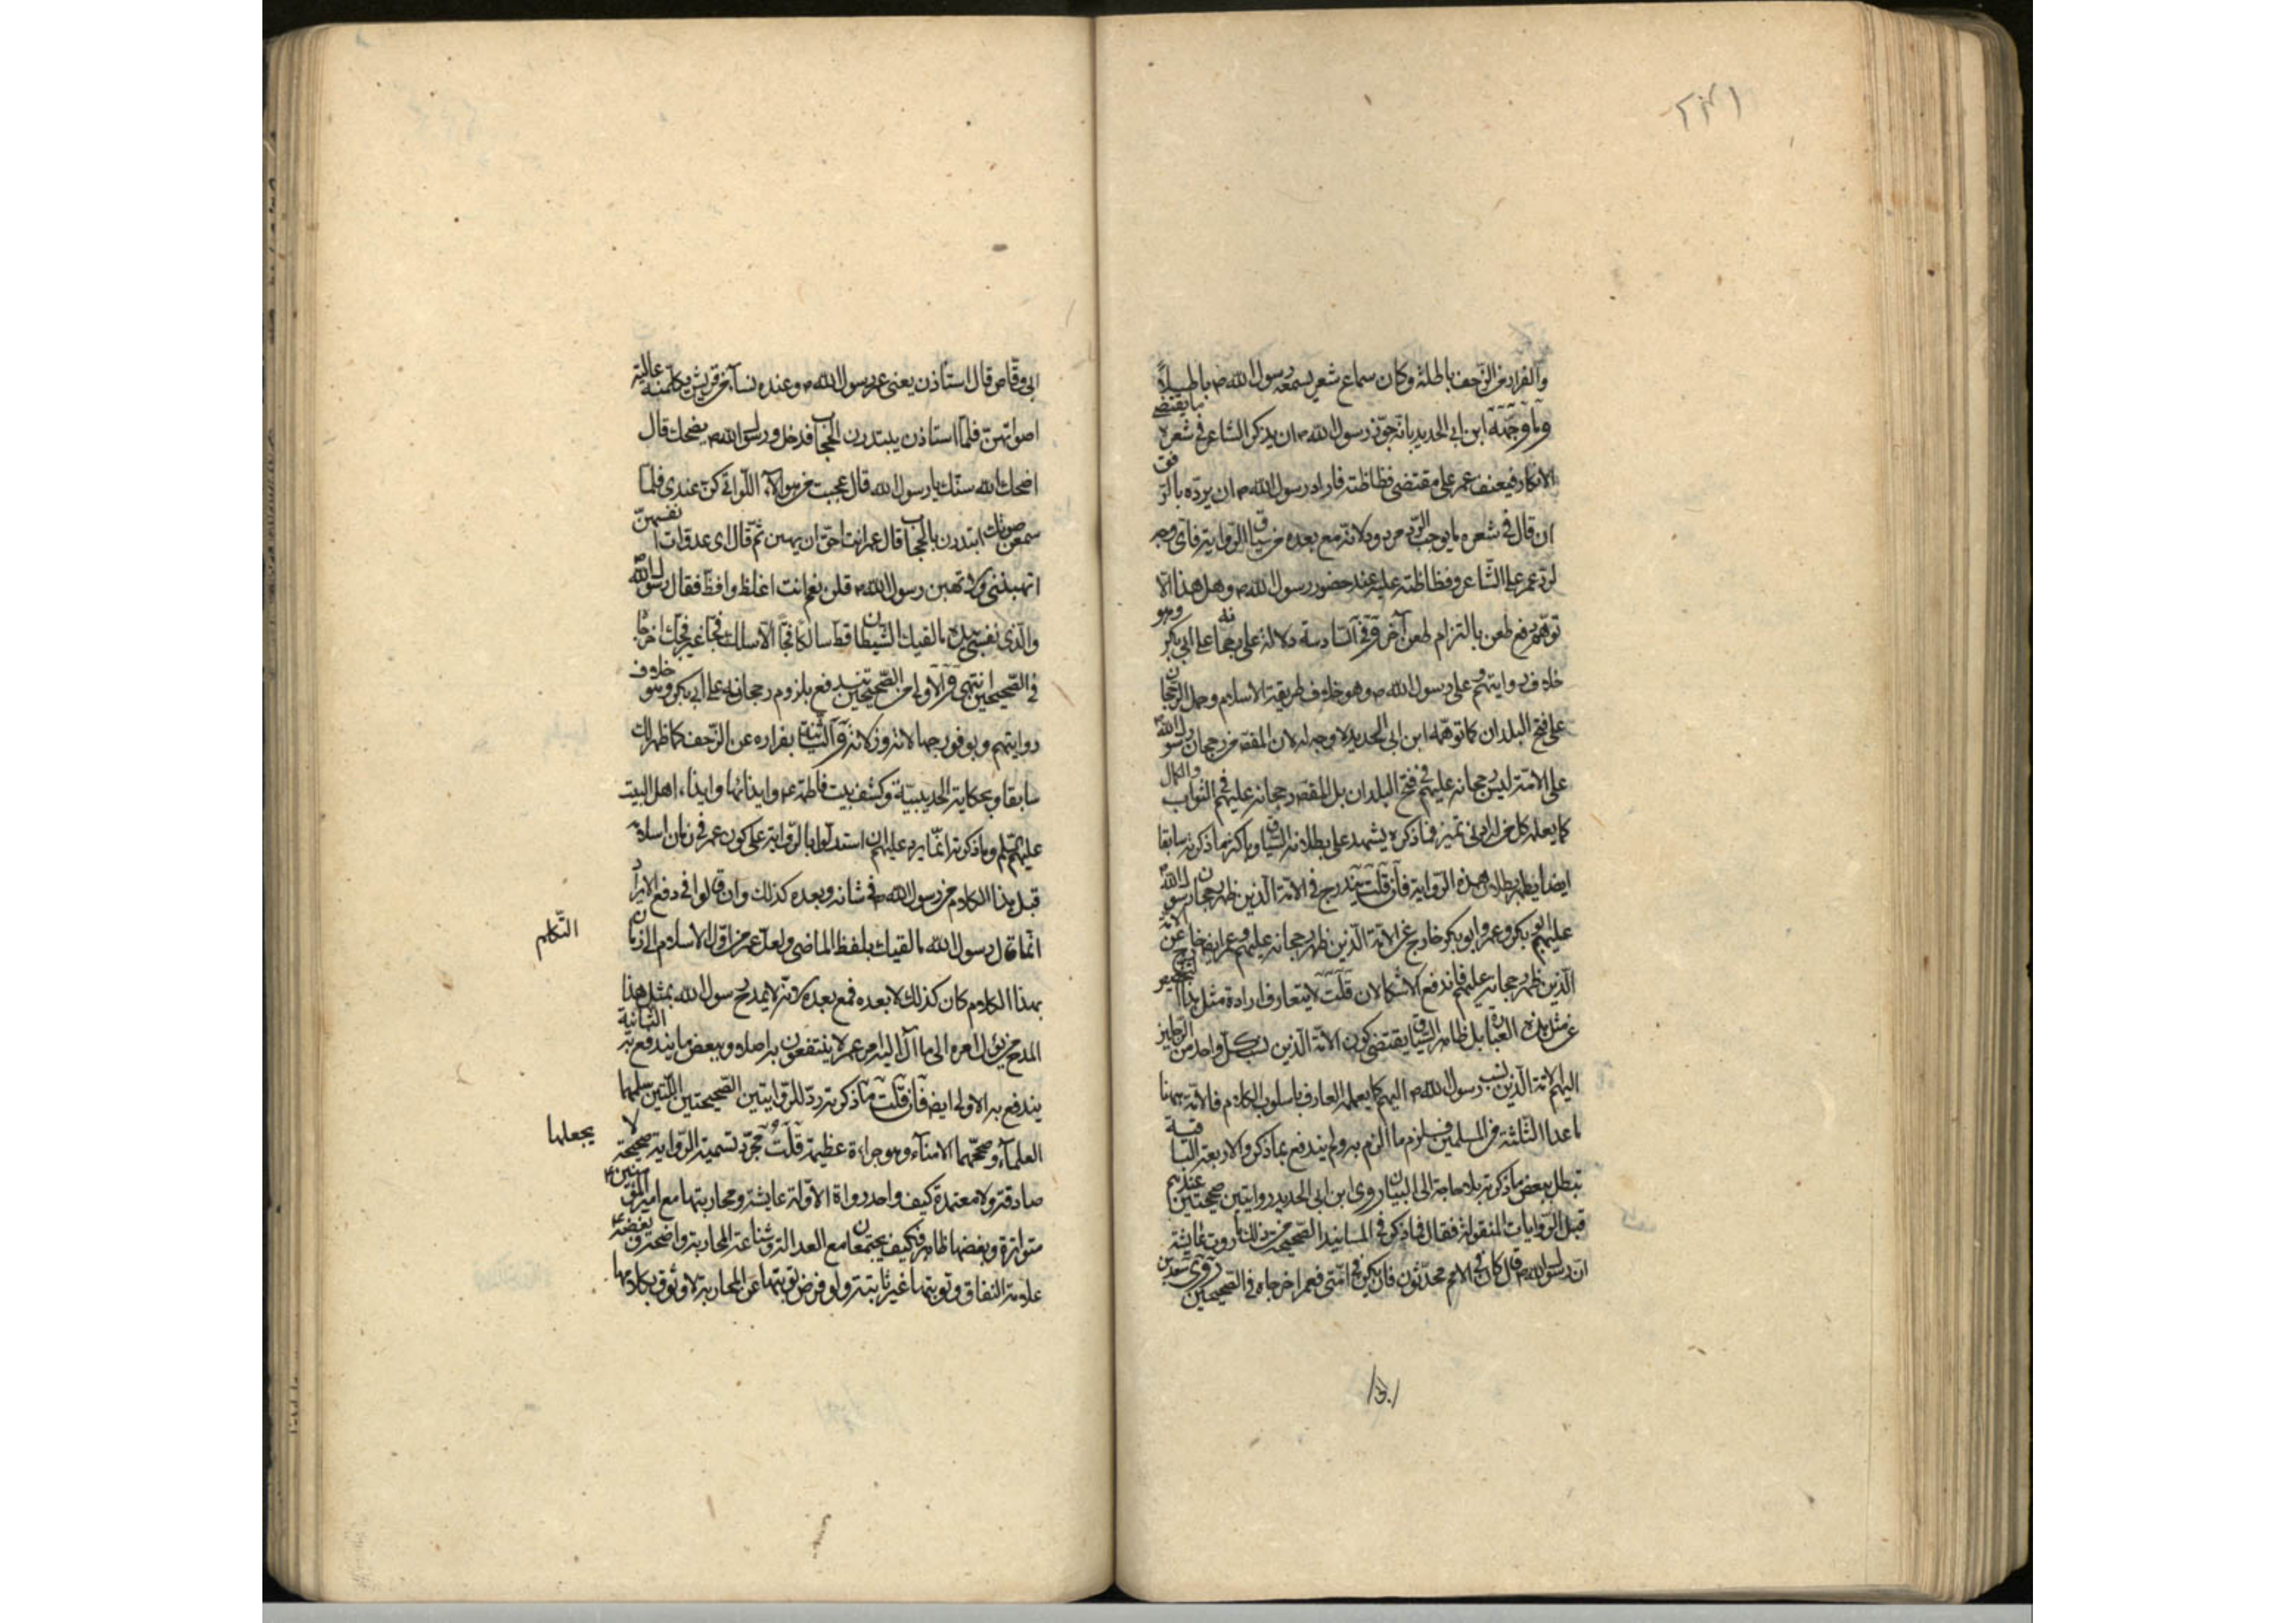 والفرار من الزحف باطلة وكان سماع شعر يسمعه رسول الله ص باطلاً
وما وجّهه ابن ابى الحديد بانه جوّز رسول الله ص ان يذكر الشاعر في شعره ما يقتضي
الانكار فيعنف عمر على مقتضى فظاظته فاراد رسول الله ص ان يردّه بالرفق
ان قال في شعره ما يوجب الردّ مردود لانه مع بعده من سياق الرواية فاى وجه
لردّ عمر على الشاعر وفظاظته عليه عند حضور رسول الله ص وهل هذا الا
توهّم دفع طعن بالتزام طعن آخر وفي السادسة دلالة على رجحانه على ابى بكر وهو
خلاف روايتهم وعلى رسول الله ص وهو خلاف طريقة الاسلام وحمل الرجحان
على فتح البلدان كما توهّمه ابن ابى الحديد لا وجه له لان المقصد من رجحان رسول الله ص
على الامة ليس رجحانه عليهم في فتح البلدان بل المقصد رجحانه عليهم في الثواب والكمال
كما يعلمه كل من له ادنى تميز فما ذكره يشهد على بطلانه السياق وباكثر ما ذكرته سابقا
ايضا يظهر بطلان هذه الرواية فان قلت يندرج في الامة الذين ظهر رجحان رسول الله ص
عليهم ابو بكر وعمر وابو بكر خارج عن الامة الذين ظهر رجحانه عليهم وعمر ايضا خارج عن الامة
الذين ظهر رجحانه عليهم فاندفع الاشكالان قلت لا يتعارف ارادة مثل هذا التخصيص
عن مثل هذه العبارة بل ظاهر السياق يقتضى كون الامة الذين نسب كل واحد من الرجلين
اليهم الامة الذين نسب رسول الله ص اليهم كما يعلمه العارف باسلوب الكلام فالامة ههنا
ما عدا الثلثة من المسلمين فيلزم ما الزم به ولم يندفع بما ذكر والاربعة الباقية
تبطل ببعض ما ذكرته بلا حاجة الى البيان روى ابن ابى الحديد روايتين صحيحتين عندهم
قبل الروايات المنقولة فقال فما ذكر في المسانيد الصحيحة من ذلك ما روت عائشة
ان رسول الله ص قال كان في الامم محدّثون فان يكن في امّتى فعمر اخرجاه في الصحيحين وروى سعد بن
ابى
ابى وقاص قال استأذن يعنى عمر رسول الله ص وعنده نساء من قريش يكلّمنه عالية
اصواتهنّ فلمّا استأذن يبتدرن الحجاب فدخل ورسول الله ص يضحك قال
اضحك الله سنّك يا رسول الله قال عجبت من هؤلاء اللواتى كنّ عندى فلمّا
سمعن صوتك ابتدرن بالحجاب قال عمر انت احقّ ان يهبن ثم قال اى عدوات انفسهنّ
اتهبننى ولا تهبن رسول الله ص قلن نعم انت اغلظ وافظّ فقال رسول الله ص
والذى نفسي بيده ما لقيك الشيطان قط سالكا فجّا الا سلك فجّا غير فجّك اخرجاه
في الصحيحين انتهى والاولى من الصحيحين تندفع بلزوم رجحانه على ابى بكر وهو خلاف
روايتهم وبوفور جهالاته وزلاته والثانية بفراره عن الزحف كما ظهر لك
سابقا وبحكاية الحديبية وكشف بيت فاطمة ع وايذائها وايذاء اهل البيت
عليهم السلم وما ذكرته انما يرد عليهم ان استدلوا بالرواية على كون عمر في زمان اسلامه
قبل هذا الكلام من رسول الله ص في شانه وبعده كذلك وان قالوا في دفع الايراد
انما قال رسول الله ما لقيك بلفظ الماضى ولعل عمر من اول الاسلام الى زمان
التكلم
بهذا الكلام كان كذلك لا بعده فمع بعده لانه لا يمدح رسول الله بمثل هذا
المدح من يؤل امره الى ما آل اليه امر عمر لا ينتفعون به اصلا وببعض ما يندفع به الثانية
يندفع به الاولى ايضا فان قلت ما ذكرته ردّ للروايتين الصحيحتين اللتين سلمهما
العلماء وصححهما الامناء وهو جراءة عظيمة قلت مجرّد تسمية الرواية صحيحة لا
يجعلها
صادقة ولا معتمدة كيف واحد رواة الاولة عايشة ومحاربتها مع امير المؤمنين ع
متواترة وبغضها ظاهر فكيف يجتمعان مع العدالة وشناعة المحاربة واضحة وبغضه ع
علامة النفاق وتوبتها غير ثابتة ولو فرض توبتها عن المحاربة لا وثوق بكلامها